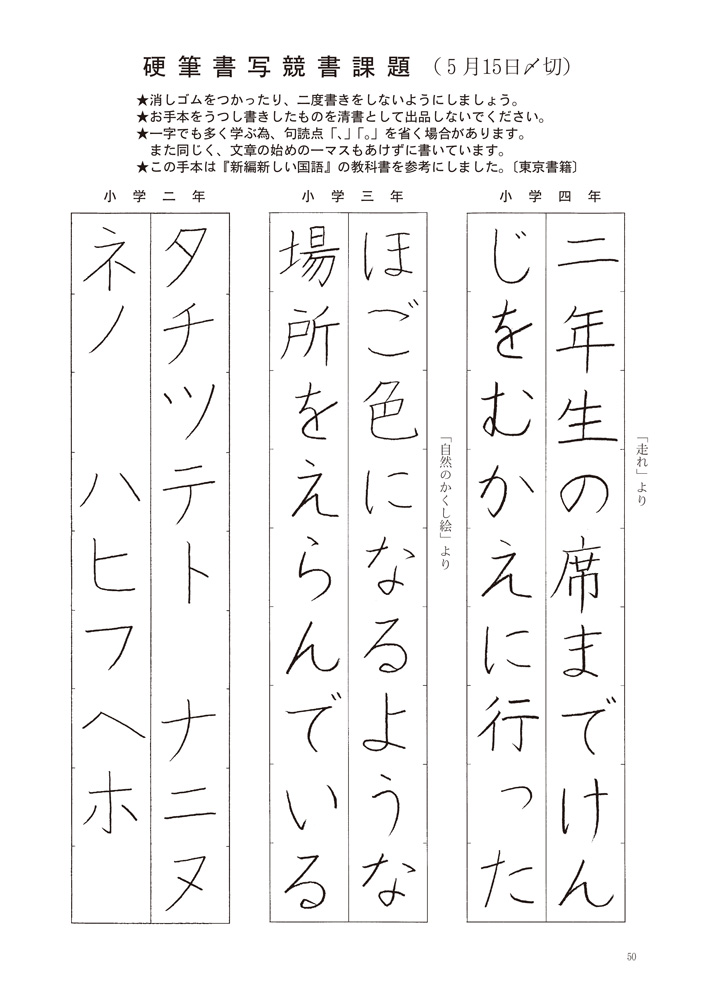 硬筆書写競書課題（５月15日〆切）
★消しゴムをつかったり、二度書きをしないようにしましょう。
★お手本をうつし書きしたものを清書として出品しないでください。
★一字でも多く学ぶ為、句読点「、」「。」を省く場合があります。
また同じく、文章の始めの一マスもあけずに書いています。
★この手本は『新編新しい国語』の教科書を参考にしました。〔東京書籍〕
小学四年
「走れ」より
二年生の席までけん
じをむかえに行った
小学三年
「自然のかくし絵」より
ほご色になるような
場所をえらんでいる
小学二年
タチツテト　ナニヌ
ネノ　ハヒフヘホ
50